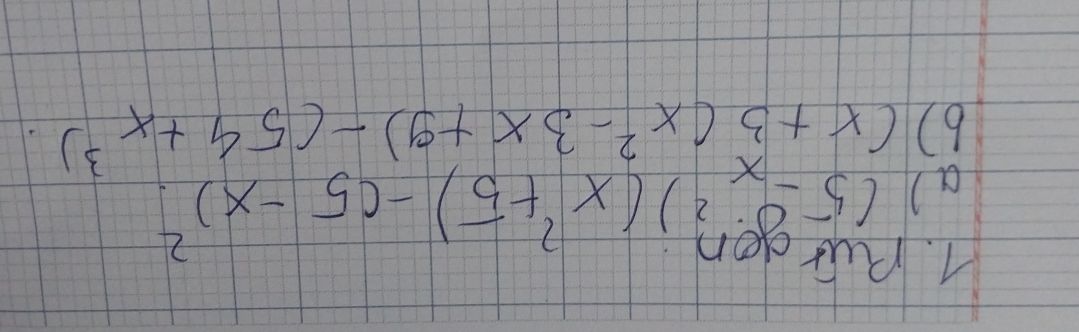 1. Rút gọn:
a) (5 - x²)(x² + 5) - (5 - x)².
b) (x + 3 (x² - 3x + 9) - (54 + x³).